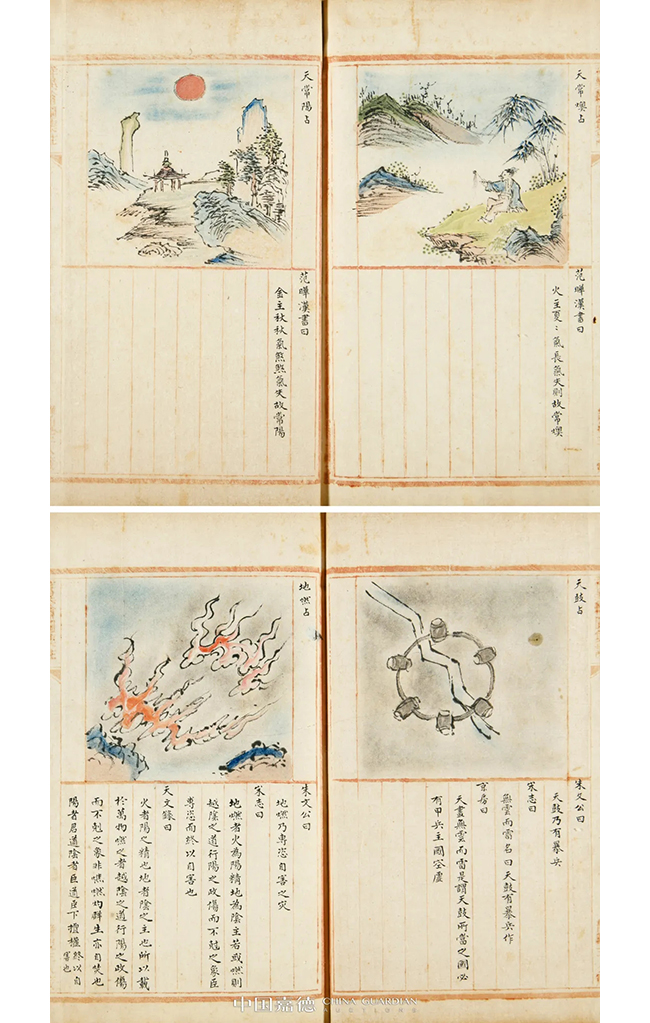 天常燠占
范曄漢書曰
火主夏〻氣長氣失則故常燠
天常陽占
范曄漢書曰
金主秋秋氣煞煞氣失故常陽
天鼓占
朱文公曰
天鼓乃有暴兵
宋志曰
無雲而雷名曰天鼓有暴兵作
京房曰
天晝無雲而雷是謂天鼓所當之國必
有甲兵主國空虛
地燃占
朱文公曰
地燃乃專恣自害之災
宋志曰
地燃者火為陽精地為陰主若或燃則
越陰之道行陽之政傷而不剋之象臣
專恣而終以自害也
天文錄曰
火者陽之精也地者陰之主也所以載
於萬物燃之者越陰之道行陽之政傷
而不剋之象非燋燃灼群生亦自焚也
陽者君道陰者臣道臣下擅權終以自
害也
中国嘉德 CHINA GUARDIAN
AUCTIONS